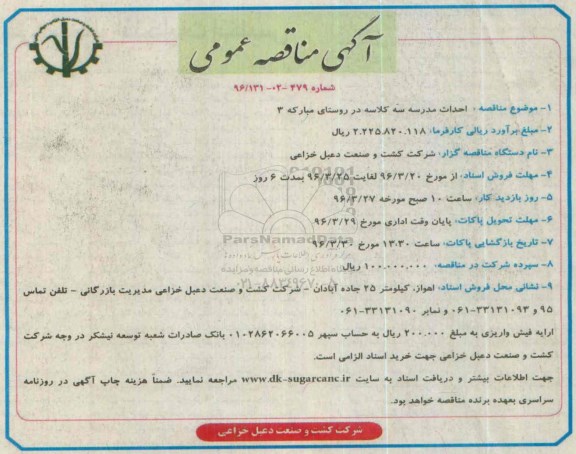 آگهی مناقصه عمومی
شماره ۴۷۹ -۰۲- ۹۶/۱۳۱
۱- موضوع مناقصه : احداث مدرسه سه کلاسه در روستای مبارکه ۳
۲- مبلغ برآورد ریالی کارفرما: ۲.۲۲۵.۸۲۰.۱۱۸ ریال
۳- نام دستگاه مناقصه گزار: شرکت کشت و صنعت دعبل خزاعی
۴- مهلت فروش اسناد: از مورخ ۹۶/۳/۲۰ لغایت ۹۶/۳/۲۵ بمدت ۶ روز
۵- روز بازدید کار: ساعت ۱۰ صبح مورخه ۹۶/۳/۲۷
۶- مهلت تحویل پاکات: پایان وقت اداری مورخ ۹۶/۳/۲۹
ParsNamadData
۷- تاریخ بازگشایی پاکات: ساعت ۱۳:۳۰ مورخ ۹۶/۳/۳۰
پایگاه اطلاع رسانی مناقصه و مزایده
۸- سپرده شرکت در مناقصه: ۱۰۰.۰۰۰.۰۰۰ ریال
۹- نشانی محل فروش اسناد: اهواز، کیلومتر ۲۵ جاده آبادان - شرکت کشت و صنعت دعبل خزاعی مدیریت بازرگانی - تلفن تماس
۹۵ و ۰۶۱-۳۳۱۳۱۰۹۳ و نمابر ۰۶۱-۳۳۱۳۱۰۹۰
ارایه فیش واریزی به مبلغ ۲۰۰.۰۰۰ ریال به حساب سپهر ۰۱۰۲۸۶۲۰۶۶۰۰۵ بانک صادرات شعبه توسعه نیشکر در وجه شرکت
کشت و صنعت دعبل خزاعی جهت خرید اسناد الزامی است.
جهت اطلاعات بیشتر و دریافت اسناد به سایت www.dk-sugarcanc.ir مراجعه نمایید. ضمناً هزینه چاپ آگهی در روزنامه
سراسری بعهده برنده مناقصه خواهد بود.
شرکت کشت و صنعت دعبل خزاعی